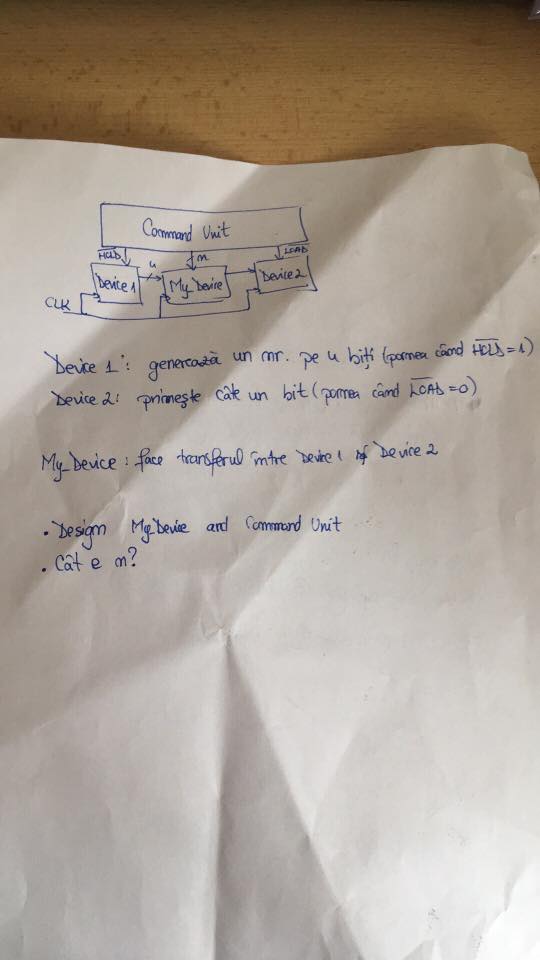 Command Unit
HOLD 4 m LOAD
Device 1 My_Device Device 2
CLK
Device 1: generează un nr. pe 4 biți (pornea când H̅O̅L̅D̅=1)
Device 2: primește câte un bit (pornea când L̅O̅A̅D̅=0)
My_Device: face transferul între Device 1 și Device 2
• Design My_Device and Command Unit
• Cât e m?